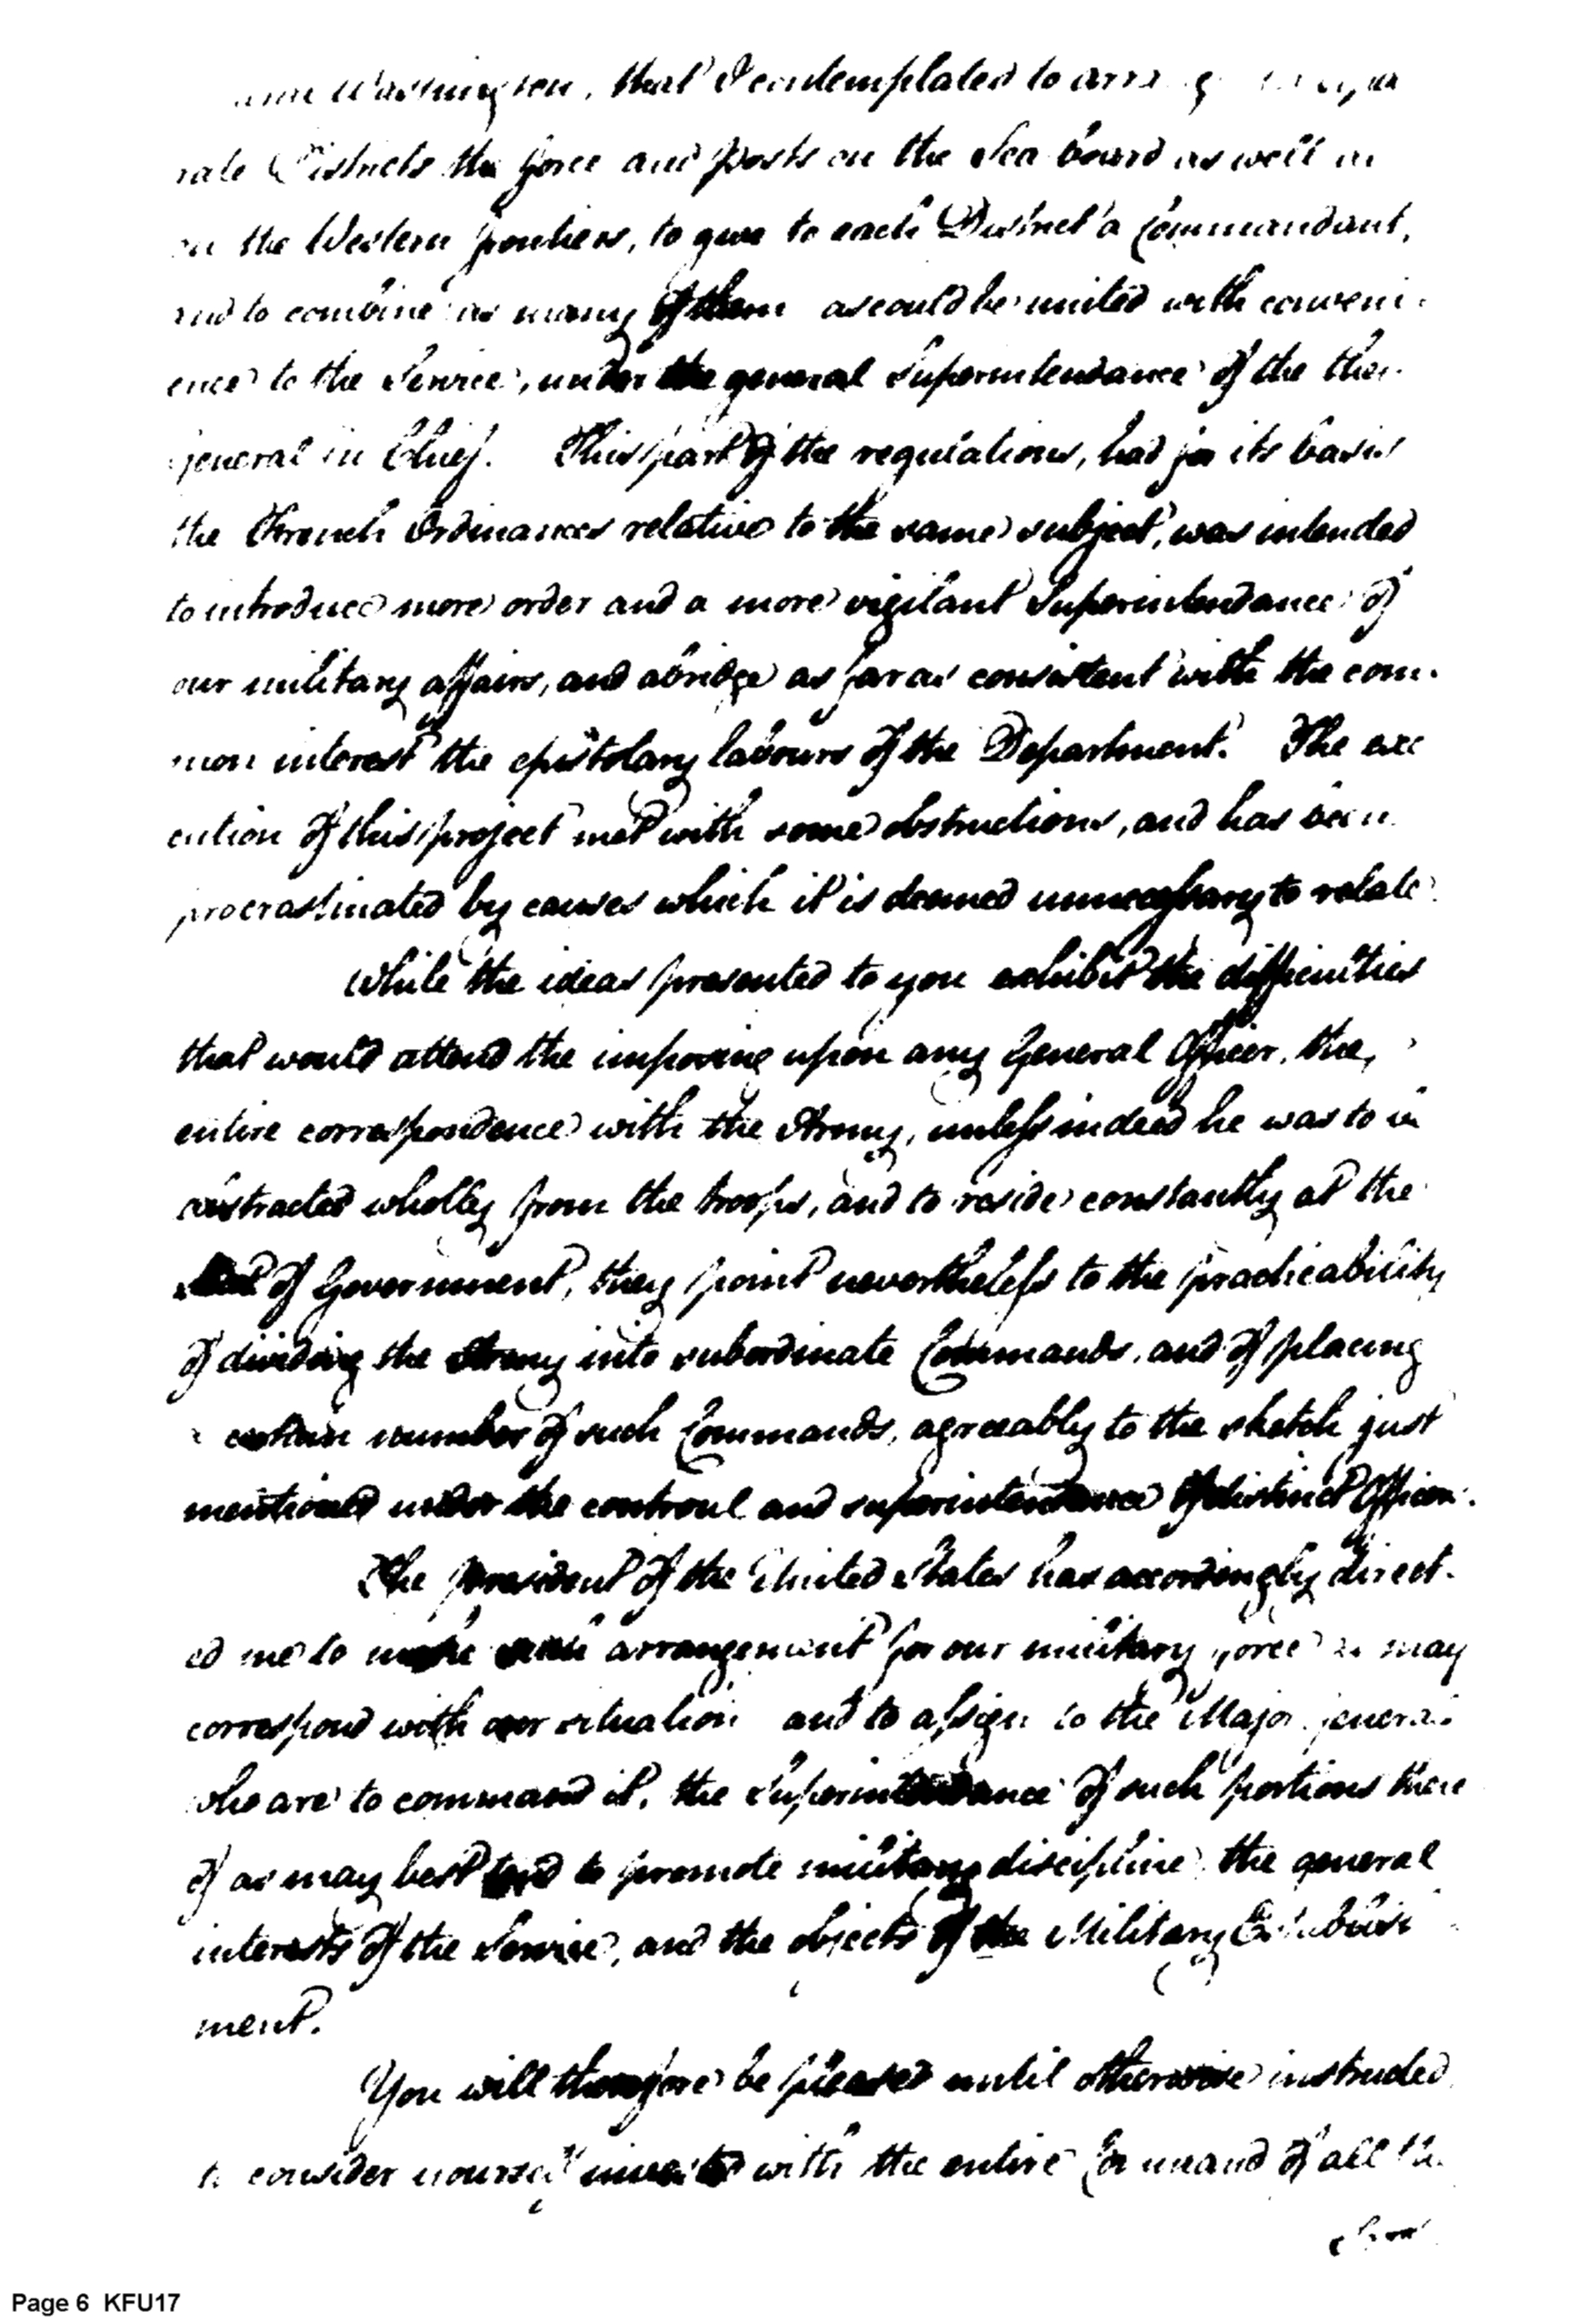 Washington, that I contemplated to
rate Districts the force and posts on the Sea board as well as
on the Western frontiers, to give to each District a Commandant,
and to combine as many of them as could be united with conveni-
ence to the Service, under the general Superintendance of the then
general in Chief. This part of the regulations, had for its basis
the French Ordinances relative to the same subject, was intended
to introduce more order and a more vigilant Superintendance of
our military affairs, and abridge as far as consistent with the com-
mon interest the epistolary labours of the Department. The exe
cution of this project met with some obstructions, and has been
procrastinated by causes which it is deemed unnecessary to relate
While the ideas presented to you exhibit the difficulties
that would attend the imposing upon any General Officer, the
entire correspondence with the Army, unless indeed he was to be
abstracted wholly from the troops, and to reside constantly at the
Seat of Government, they point nevertheless to the practicability
of dividing the Army into subordinate Commands, and of placing
a certain number of such Commands, agreeably to the sketch just
mentioned under the controul and superintendance of distinct Officers.
The president of the United States has accordingly direct-
ed me to make such arrangement for our military force as may
correspond with our situation and to assign to the Major generals
who are to command it, the Superintendance of such portions there
of as may best tend to promote military discipline, the general
interests of the Service, and the objects of the Military Establish
ment.
You will therefore be pleased until otherwise instructed
to consider yourself invested with the entire Command of all the
Page 6 KFU17